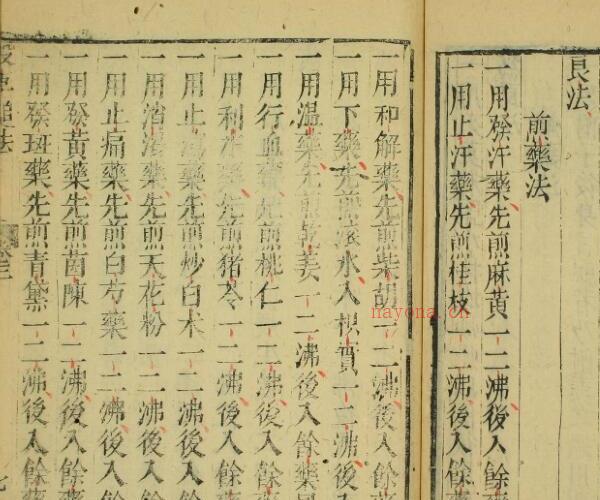 良法
前藥法
一用發汗藥先煎麻黃一二沸後入餘藥
一用止汗藥先煎桂枝一二沸後入餘藥
一用和解藥先煎柴胡一二沸後入餘藥
一用下藥先煎滾水入枳實一二沸後入餘藥
一用溫藥先煎乾姜一二沸後入餘藥
一用行血藥先煎桃仁一二沸後入餘藥
一用利水藥先煎猪苓一二沸後入餘藥
一用止瀉藥先煎炒白朮一二沸後入餘藥
一用消渴藥先煎天花粉一二沸後入餘藥
一用止痛藥先煎白芍藥一二沸後入餘藥
一用發黃藥先煎茵陳一二沸後入餘藥
一用發斑藥先煎青黛一二沸後入餘藥
nayona.cn